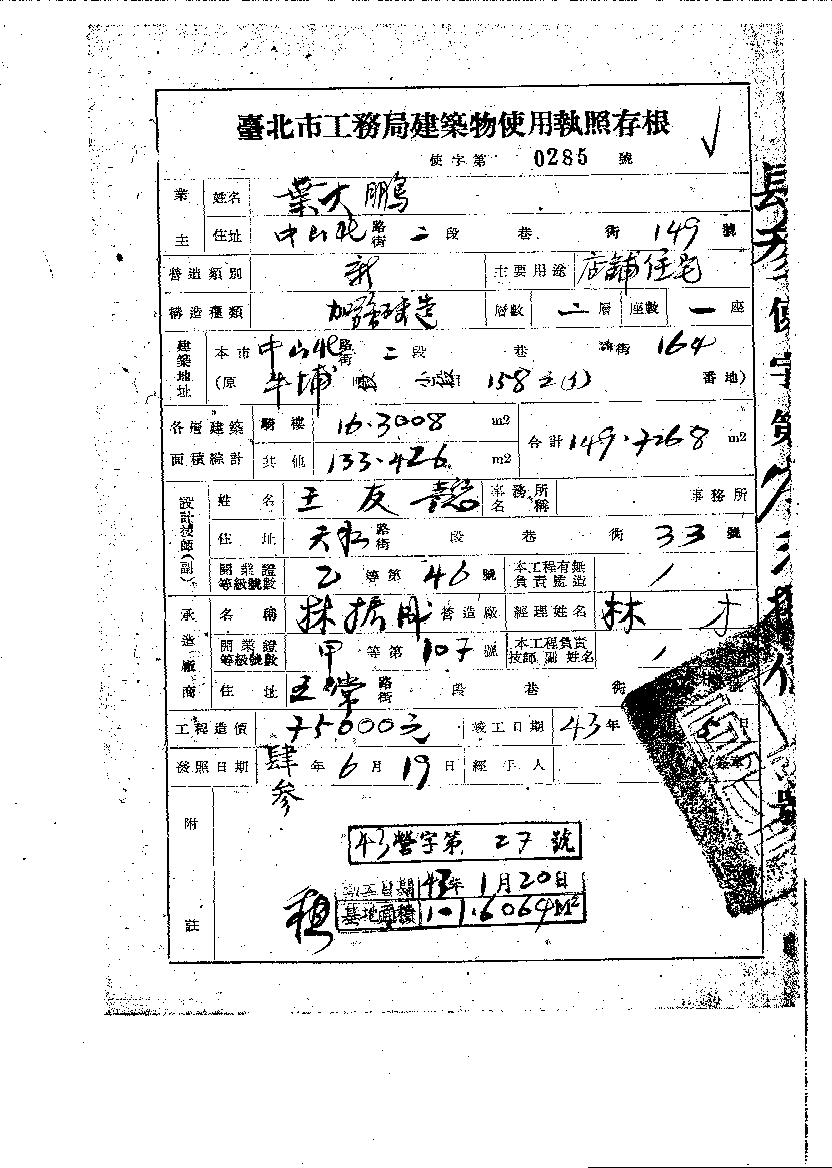 臺北市工務局建築物使用執照存根
使字第 0285 號
業主 姓名 葉大鵬
住址 中山北路街 二段 巷 街 149 號
營造類別 新 主要用途 店鋪住宅
構造種類 加強磚造 層數 二層 座數 一座
建築地址 本市 中山北路街 二段 巷 街 164
(原 牛埔 158之(1) 番地)
各層建築面積綜計 騎樓 16.3008 m2 合計 149.7268 m2
其他 133.426 m2
設計技師(副) 姓名 王友 事務所名稱 事務所
住址 天水路街 段 巷 街 33 號
開業證等級號數 乙等第 46 號 本工程有無負責監造 /
承造廠商 名稱 林振 營造廠 經理姓名 林才
開業證等級號數 甲等第 107 號 本工程負責技師副姓名 /
住址 五常路街 段 巷 街 號
工程造價 75000元 竣工日期 43年 5 日
發照日期 肆參年 6月 19日 經手人
附註
43營字第 27 號
日期 43年 1月20日
基地面積 101.6064M2
使字第